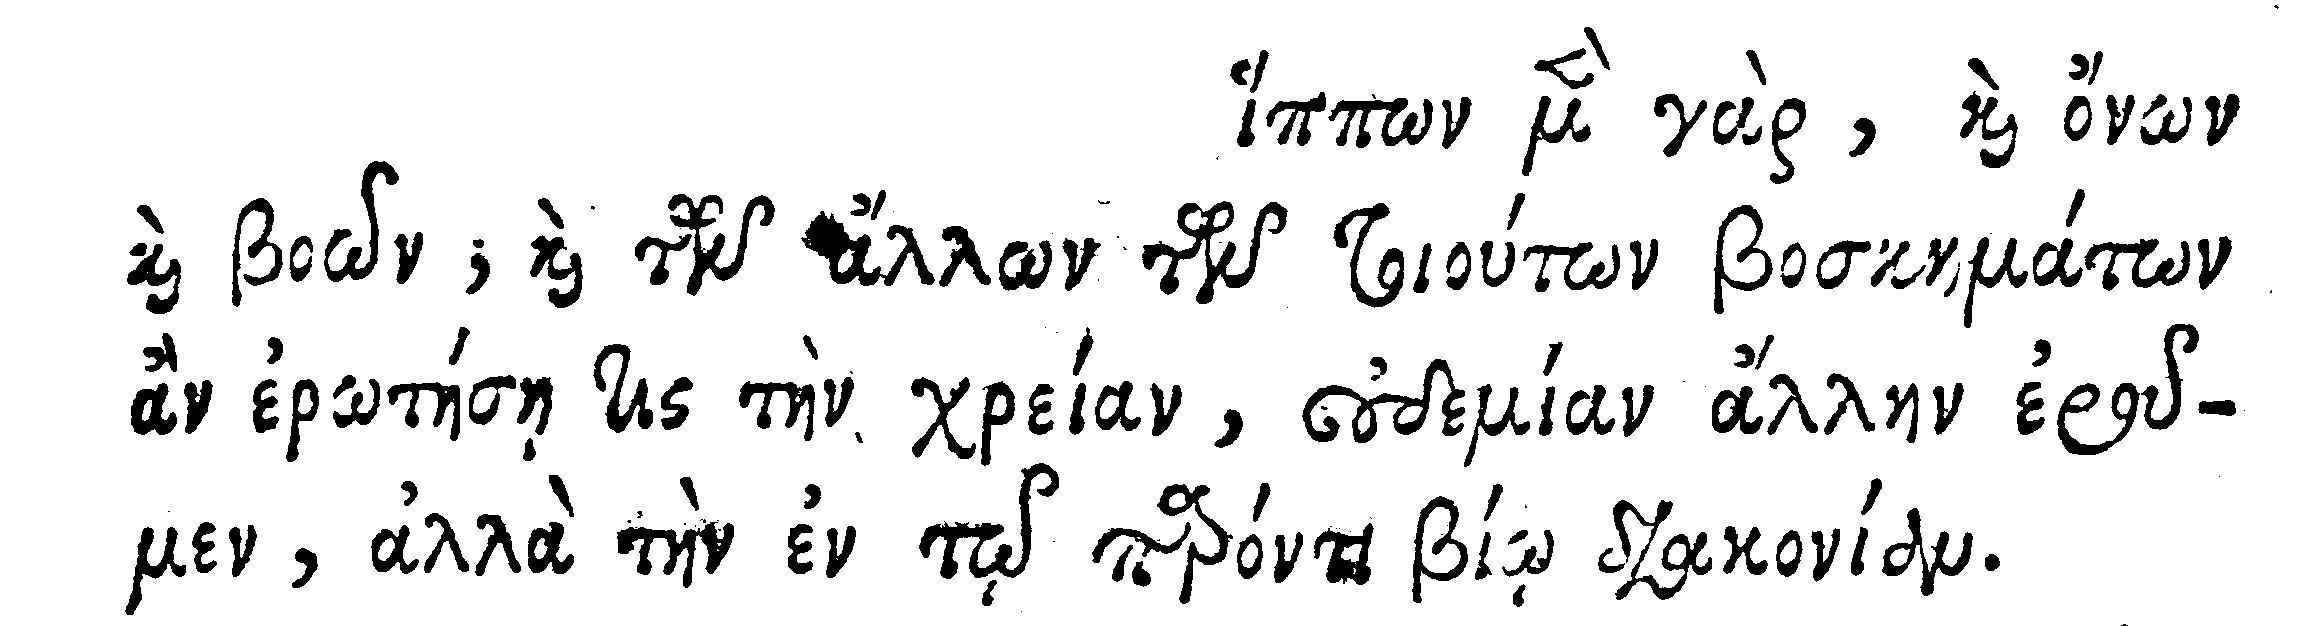 ἵππων μὲν γὰρ, καὶ ὄνων
καὶ βοῶν; καὶ τῶν ἄλλων τῶν τοιούτων βοσκημάτων
ἂν ἐρωτήσῃ τις τὴν χρείαν, οὐδεμίαν ἄλλην ἐροῦ-
μεν, ἀλλὰ τὴν ἐν τῷ παρόντι βίῳ διακονίαν.